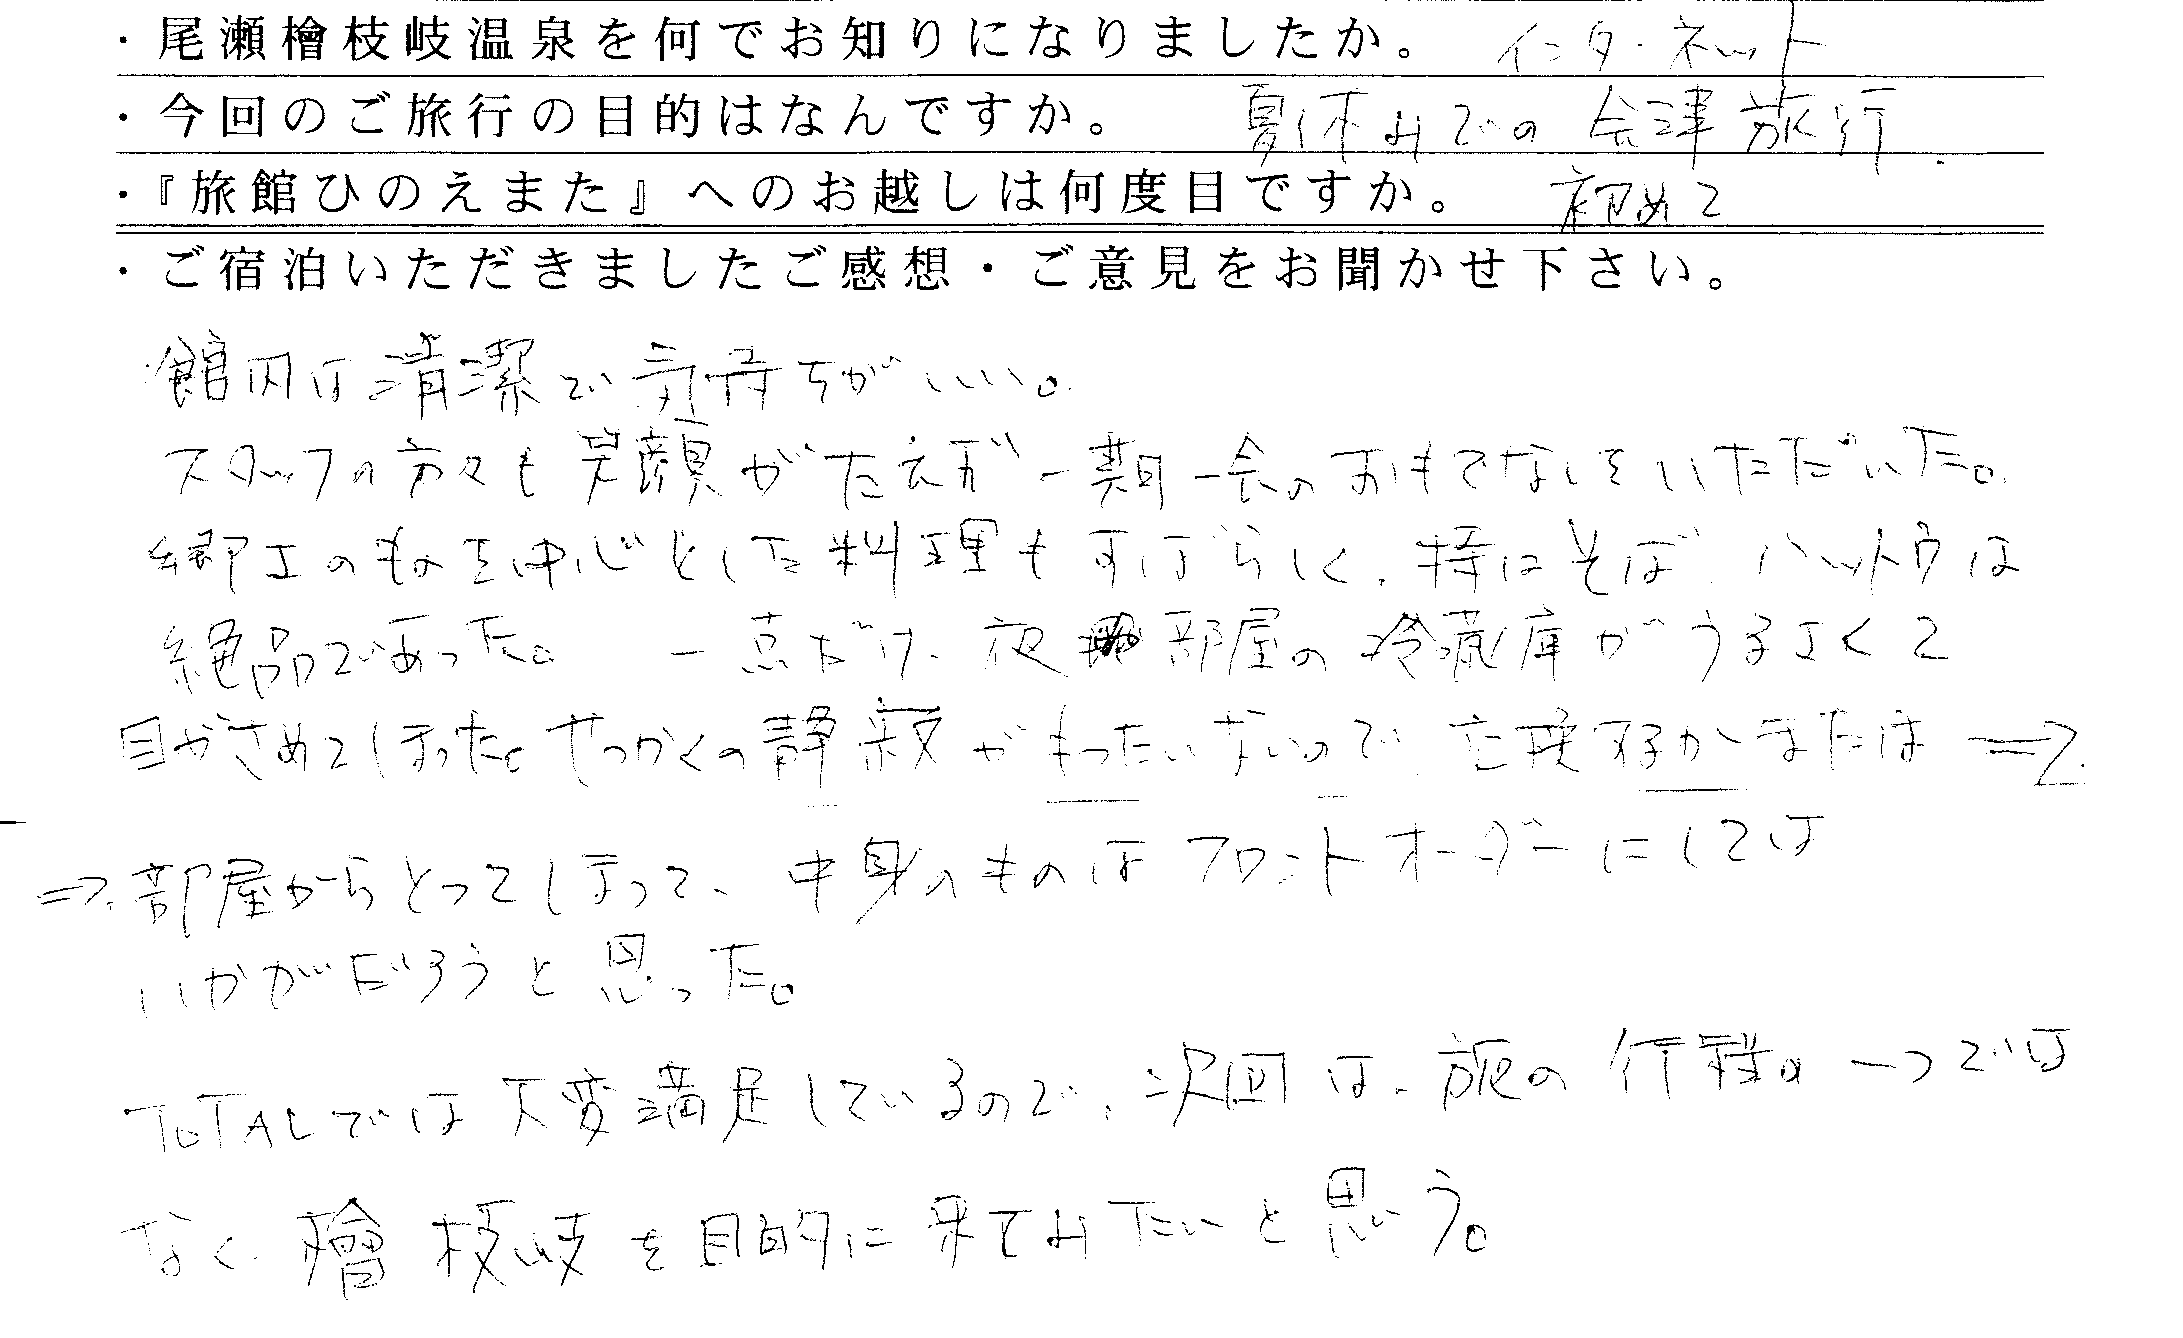 ・尾瀬檜枝岐温泉を何でお知りになりましたか。 インターネット
・今回のご旅行の目的はなんですか。 夏休みでの会津旅行.
・『旅館ひのえまた』へのお越しは何度目ですか。 初めて
・ご宿泊いただきましたご感想・ご意見をお聞かせ下さい。
館内は清潔で気持ちがいい。
スタッフの方々も笑顔がたえず一期一会のおもてなしをいただいた。
郷土のものを中心とした料理もすばらしく、特にそば、ハットウは
絶品であった。 一点だけ、夜 部屋の冷蔵庫がうるさくて
目がさめてしまった。せっかくの静寂がもったいないので、 するか または ⇒
⇒ 部屋からとってしまって、中身のものはフロントオーダーにしては
いかがだろうと思った。
TOTALでは大変満足しているので、次回は、旅の行程の一つでは
なく、檜枝岐を目的に来てみたいと思う。